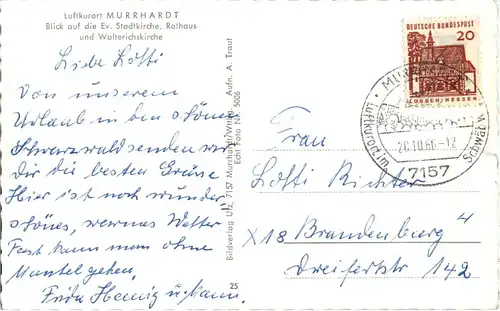 Luftkurort MURRHARDT
Blick auf die Ev. Stadtkirche, Rathaus
und Walterichskirche
Liebe Lotti
Von unserem
Urlaub in dem schönen
Schwarzwald senden wir
dir die besten Grüsse
Hier ist noch wunder
schönes, warmes Wetter
Fast kann man ohne
Mantel gehen.
Frida Hennig u. Mann.
Bildverlag Utz, 7157 Murrhardt/Württ. Aufn. A. Traut
Echt Foto Nr. 5006
25
DEUTSCHE BUNDESPOST
20
LORSCH/HESSEN
Luftkurort im Schwäb. W.
20.10.66-12
7157
Frau
Lotti Richter
X18 Brandenburg 4
Dreifertstr 142